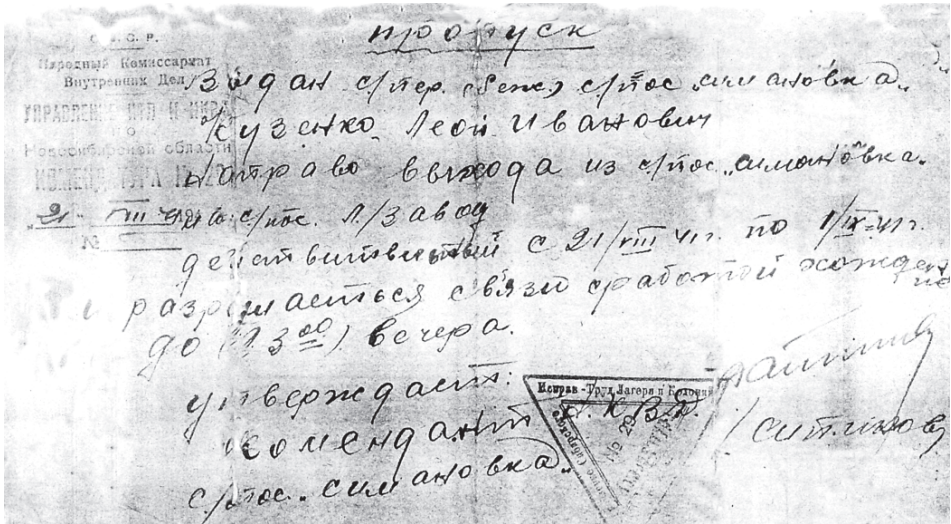 пропуск
С.С.С.Р.
Народный Комиссариат
Внутренних Дел
УПРАВЛЕНИЕ ИТЛ И
по
Новосибирской области
КОМЕНДАТУРА
21 VIII
№
Выдан с/пер. с/пос „симановка„
Кузенко Леон Иванович
направо выхода из с/пос „симановка„
с/пос. Л/завод
действительный с 21/VIII 41г. по 1/IX-41г.
разрешаеться связи сработой
до (23 00) вечера.
утверждает:
комендант
с/пос. „симановка„
Исправ-Труд Лагеря и Колонии
Н.К.В.Д.
№ 29